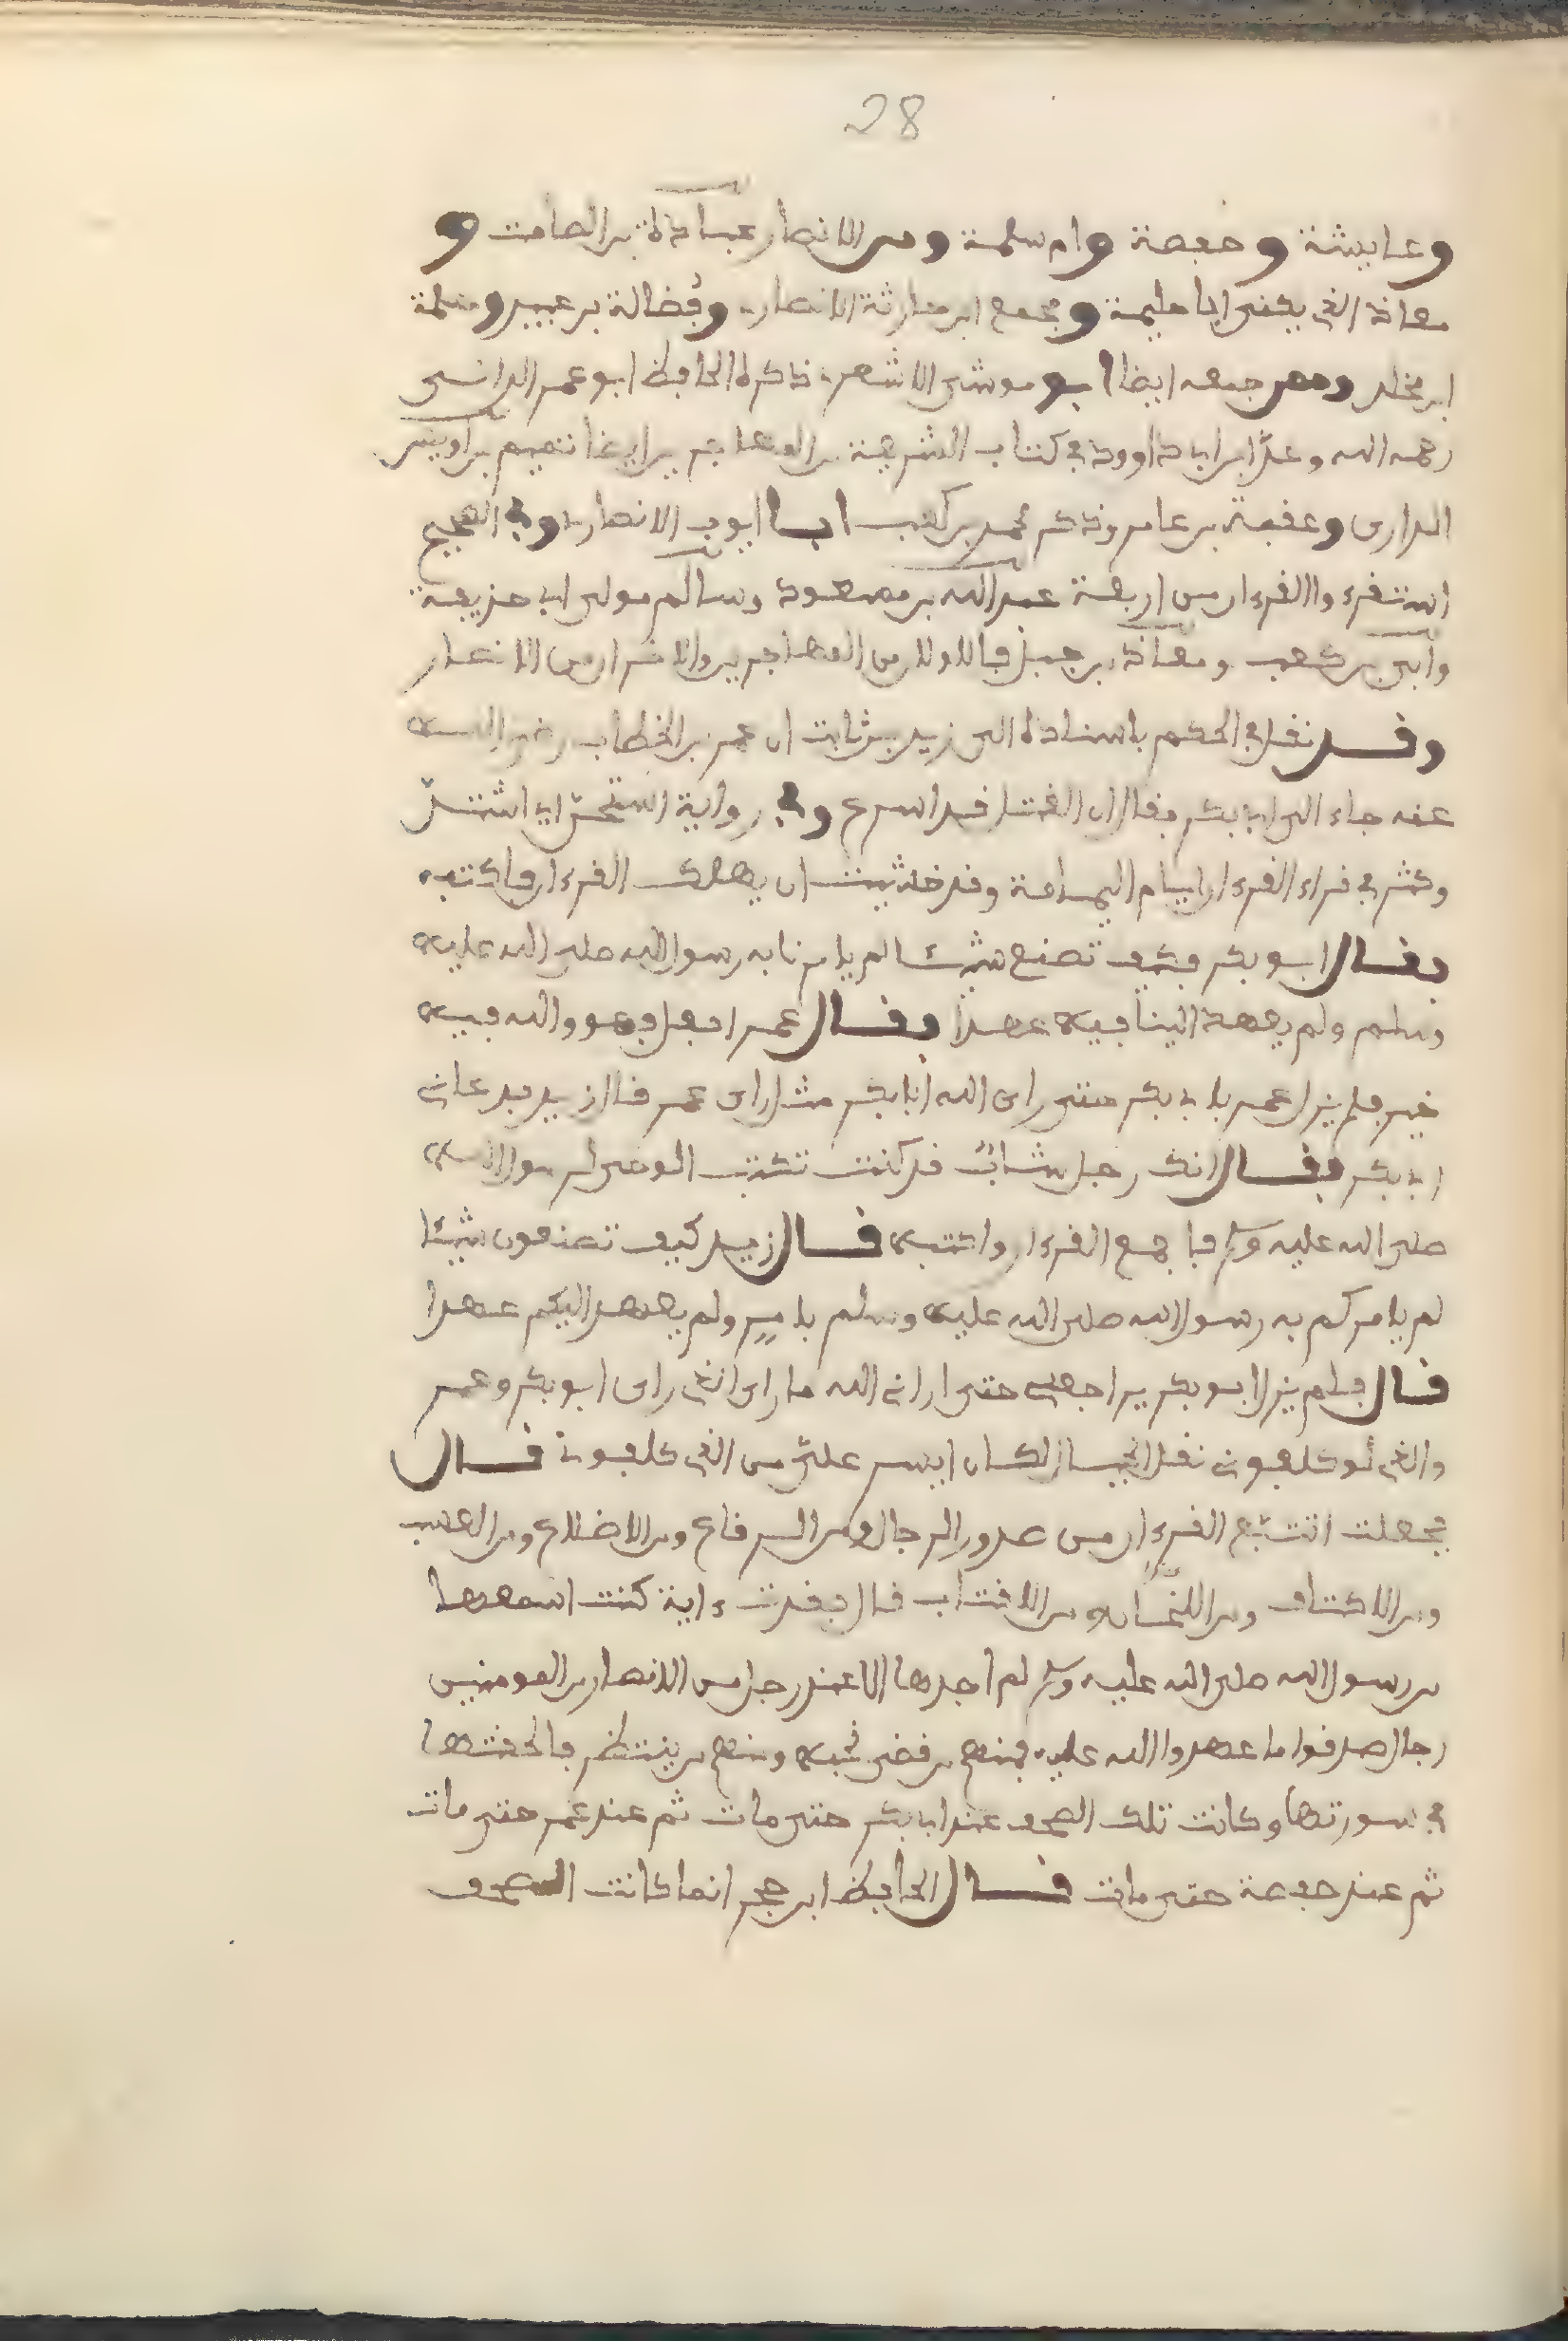 28
وعايشة وحفصة وام سلمة ومن الانصار عبادة بن الصامت و
معاذ الذي يكنى ابا حليمة ومجمع ابن حارثة الانصاري وفُضالة بن عبيد ومسلمة
ابن مخلد وممن جمعه ايضا ابو موسى الاشعري ذكره الحافظ ابو عمر الداني
رحمه الله وعدّ ابن ابي داوود في كتاب الشريعة من المهاجرين ايضا تميم بن اويس
الداري وعقبة بن عامر وذكر محمد بن كعب ابا ايوب الانصاري وفي الصحيح
استقرءوا القرءان من اربعة عبد الله بن مسعود وسالم مولى ابي حذيفة
وابي بن كعب ومعاذ بن جبل فالاولان من المهاجرين والاخران من الانصار
وقد نقل في المحكم باسناده الى زيد بن ثابت ان عمر بن الخطاب رضي الله
عنه جاء الى ابي بكر فقال ان القتل قد اسرع وفي رواية استحرّ اي اشتدّ
وكثر في قراء القرءان ايام اليمامة وقد خشيت ان يهلك القرءان فاكتبه
فقال ابو بكر فكيف تصنع شيئا لم يامرنا به رسول الله صلى الله عليه
وسلم ولم يعهد الينا فيه عهدا فقال عمر افعل فهو والله فيه
خير فلم يزل عمر بابي بكر حتى راى الله ابا بكر مثل راى عمر قال زيد فدعاني
ابو بكر فقال انك رجل شابٌ قد كنت تكتب الوحي لرسول الله
صلى الله عليه وسلم فاجمع القرءان واكتبه قال زيد كيف تصنعون شيئا
لم يامركم به رسول الله صلى الله عليه وسلم بامر ولم يعهد اليكم عهدا
قال فلم يزل ابو بكر يراجعني حتى اراني الله ما راى الذي راى ابو بكر وعمر
والله لو كلفوني نقل الجبال لكان ايسر عليّ من الذي كلفوني قال
فجعلت اتتبع القرءان من صدور الرجال ومن الرقاع ومن الاضلاع ومن العسب
ومن الاكتاف ومن اللخاف ومن الاقتاب قال ففقدت ءاية كنت اسمعها
من رسول الله صلى الله عليه وسلم لم اجدها الا عند رجل من الانصار من المومنين
رجال صدقوا ما عهدوا الله عليه فمنهم من قضى نحبه ومنهم من ينتظر فالحقتها
في سورتها وكانت تلك الصحف عند ابي بكر حتى مات ثم عند عمر حتى مات
ثم عند حفصة حتى ماتت قال الحافظ ابن حجر انما كانت الصحف